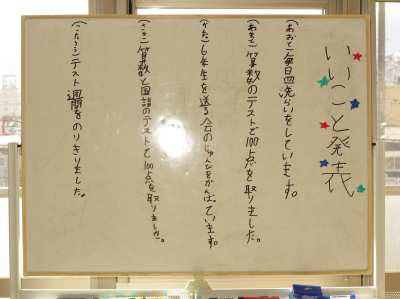 いいこと発表
(あおと)毎日皿洗いをしています。
(あまね)算数のテストで100点を取りました。
(かんた)6年生を送る会のじゅんびをがんばっています。
(さき)算数と国語のテストで100点を取りました。
(こたろう)テスト週間をのりきりました。